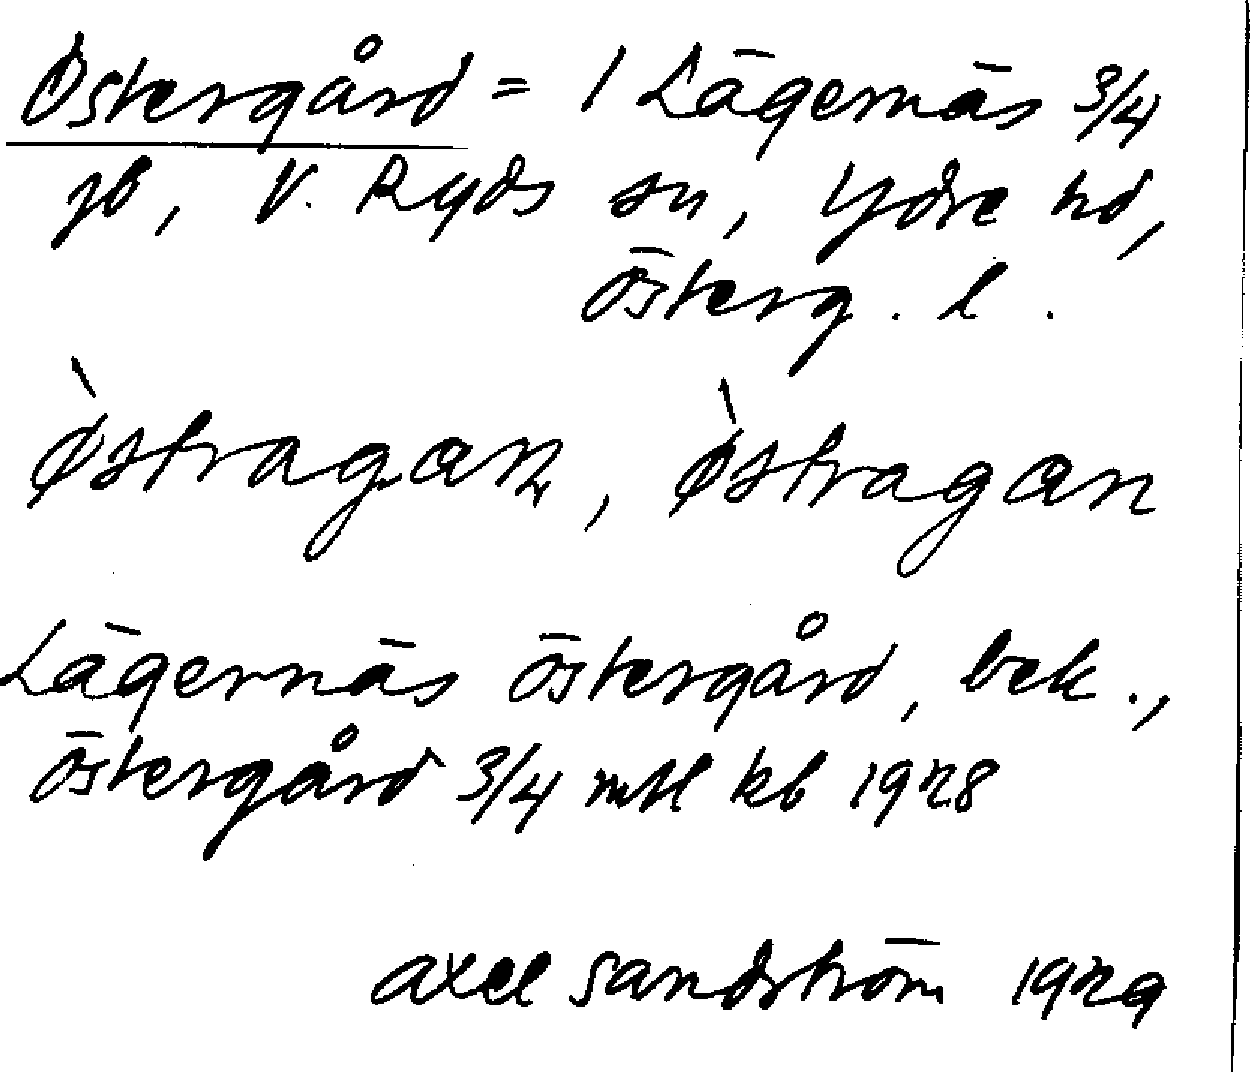 Östergård = 1 Lägernäs 3/4
jb, V. Ryds sn, Ydre hd,
Österg. l.
Ø̀straga.n, Ø̀stragan
Lägernäs Östergård, bek.,
Östergård 3/4 mtl kb 1928
Axel Sandström 1929